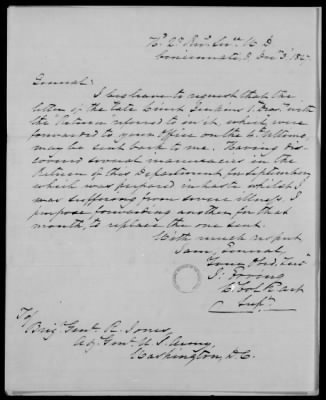 Hd. Qrs. Rec. Serv. W. D.
Cincinnati, O. Decr. 3d 1847.
General:
I beg leave to request that the
letter of the late Lieut. Jenkins 1st Drag. with
the Return referred to in it, which were
forwarded to your office on the 4th ultimo,
may be sent back to me. Having dis-
covered several inaccuracies in the
Return of this Department for September,
which was prepared in haste whilst I
was suffering from severe illness, I
purpose forwarding another for that
month, to replace the one sent.
With much respect
I am, General,
Your Obd. Serv
J: Erving
Lt Col 2 Art
Supt.
To/
Brig. Genl. R. Jones,
Adj. Genl. U. S. Army,
Washington, D.C.